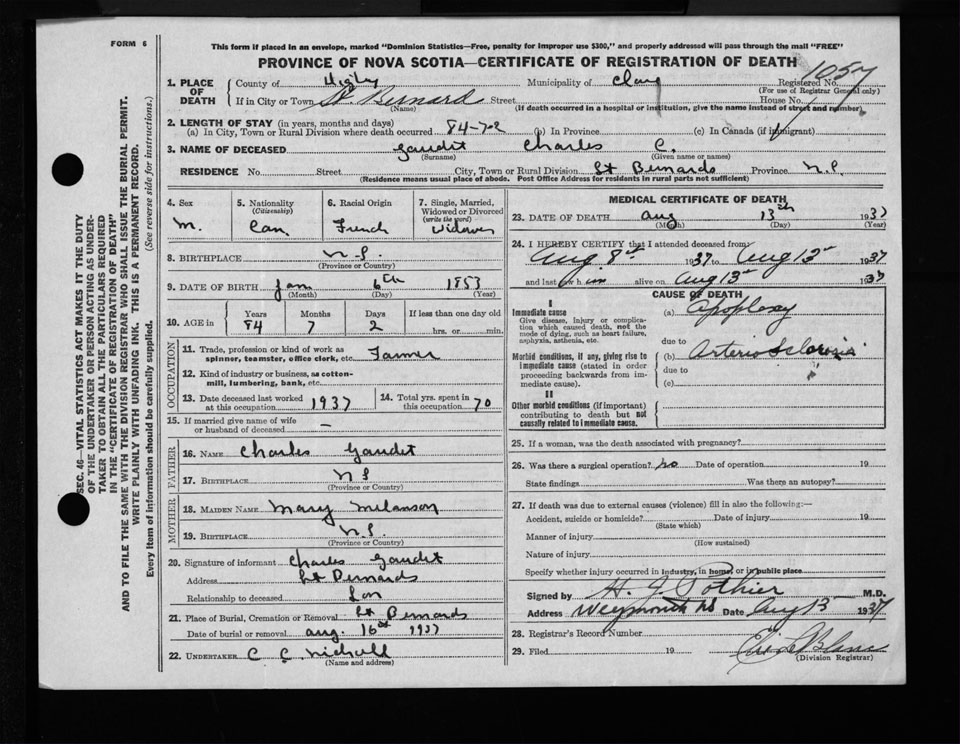 FORM 6
This form if placed in an envelope, marked "Dominion Statistics—Free, penalty for improper use $300," and properly addressed will pass through the mail "FREE"
PROVINCE OF NOVA SCOTIA—CERTIFICATE OF REGISTRATION OF DEATH
1. PLACE OF DEATH County of Digby Municipality of Clare Registered No. 1057
(For use of Registrar General only)
If in City or Town St Bernard Street House No.
(Name) (If death occurred in a hospital or institution, give the name instead of street and number)
2. LENGTH OF STAY (in years, months and days)
(a) In City, Town or Rural Division where death occurred 84-7-2 (b) In Province (c) In Canada (if immigrant)
3. NAME OF DECEASED Gaudet Charles C.
(Surname) (Given name or names)
RESIDENCE No. Street City, Town or Rural Division St Bernards Province N.S.
(Residence means usual place of abode. Post Office Address for residents in rural parts not sufficient)
4. Sex 5. Nationality (Citizenship) 6. Racial Origin 7. Single, Married, Widowed or Divorced (write the word)
M. Can French Widower
8. BIRTHPLACE N.S.
(Province or Country)
9. DATE OF BIRTH Jan 6th 1853
(Month) (Day) (Year)
10. AGE in Years Months Days If less than one day old
84 7 2 hrs. or min.
OCCUPATION
11. Trade, profession or kind of work as spinner, teamster, office clerk, etc. Farmer
12. Kind of industry or business, as cotton-mill, lumbering, bank, etc.
13. Date deceased last worked at this occupation 1937 14. Total yrs. spent in this occupation 70
15. If married give name of wife or husband of deceased —
FATHER
16. NAME Charles Gaudet
17. BIRTHPLACE N S
(Province or Country)
MOTHER
18. MAIDEN NAME Mary Melanson
19. BIRTHPLACE N.S.
(Province or Country)
20. Signature of informant Charles Gaudet
Address St Bernards
Relationship to deceased Son
21. Place of Burial, Cremation or Removal St Bernards
Date of burial or removal Aug. 16th 1937
22. UNDERTAKER C C Nicholl
(Name and address)
MEDICAL CERTIFICATE OF DEATH
23. DATE OF DEATH Aug 13th 1937
(Month) (Day) (Year)
24. I HEREBY CERTIFY that I attended deceased from
Aug 8th 1937 to Aug 13th 1937
and last saw him alive on Aug 13th 1937
CAUSE OF DEATH
I
Immediate cause (a) Apoplexy
Give disease, injury or complication which caused death, not the mode of dying, such as heart failure, asphyxia, asthenia, etc.
due to
Morbid conditions, if any, giving rise to immediate cause (stated in order proceeding backwards from immediate cause). (b) Arterio Sclerosis
due to
(c)
II
Other morbid conditions (if important) contributing to death but not causally related to immediate cause.
25. If a woman, was the death associated with pregnancy?
26. Was there a surgical operation? no Date of operation 19
State findings Was there an autopsy?
27. If death was due to external causes (violence) fill in also the following:—
Accident, suicide or homicide? Date of injury 19
(State which)
Manner of injury
(How sustained)
Nature of injury
Specify whether injury occurred in industry, in home, or in public place
Signed by H. J. Pothier M.D.
Address Weymouth NS Date Aug 13 1937
28. Registrar's Record Number
29. Filed 19
(Division Registrar)
SEC. 46—VITAL STATISTICS ACT MAKES IT THE DUTY
OF THE UNDERTAKER OR PERSON ACTING AS UNDER-
TAKER TO OBTAIN ALL THE PARTICULARS REQUIRED
IN THE "CERTIFICATE OF REGISTRATION OF DEATH"
AND TO FILE THE SAME WITH THE DIVISION REGISTRAR WHO SHALL ISSUE THE BURIAL PERMIT.
WRITE PLAINLY WITH UNFADING INK. THIS IS A PERMANENT RECORD.
Every item of information should be carefully supplied. (See reverse side for instructions.)